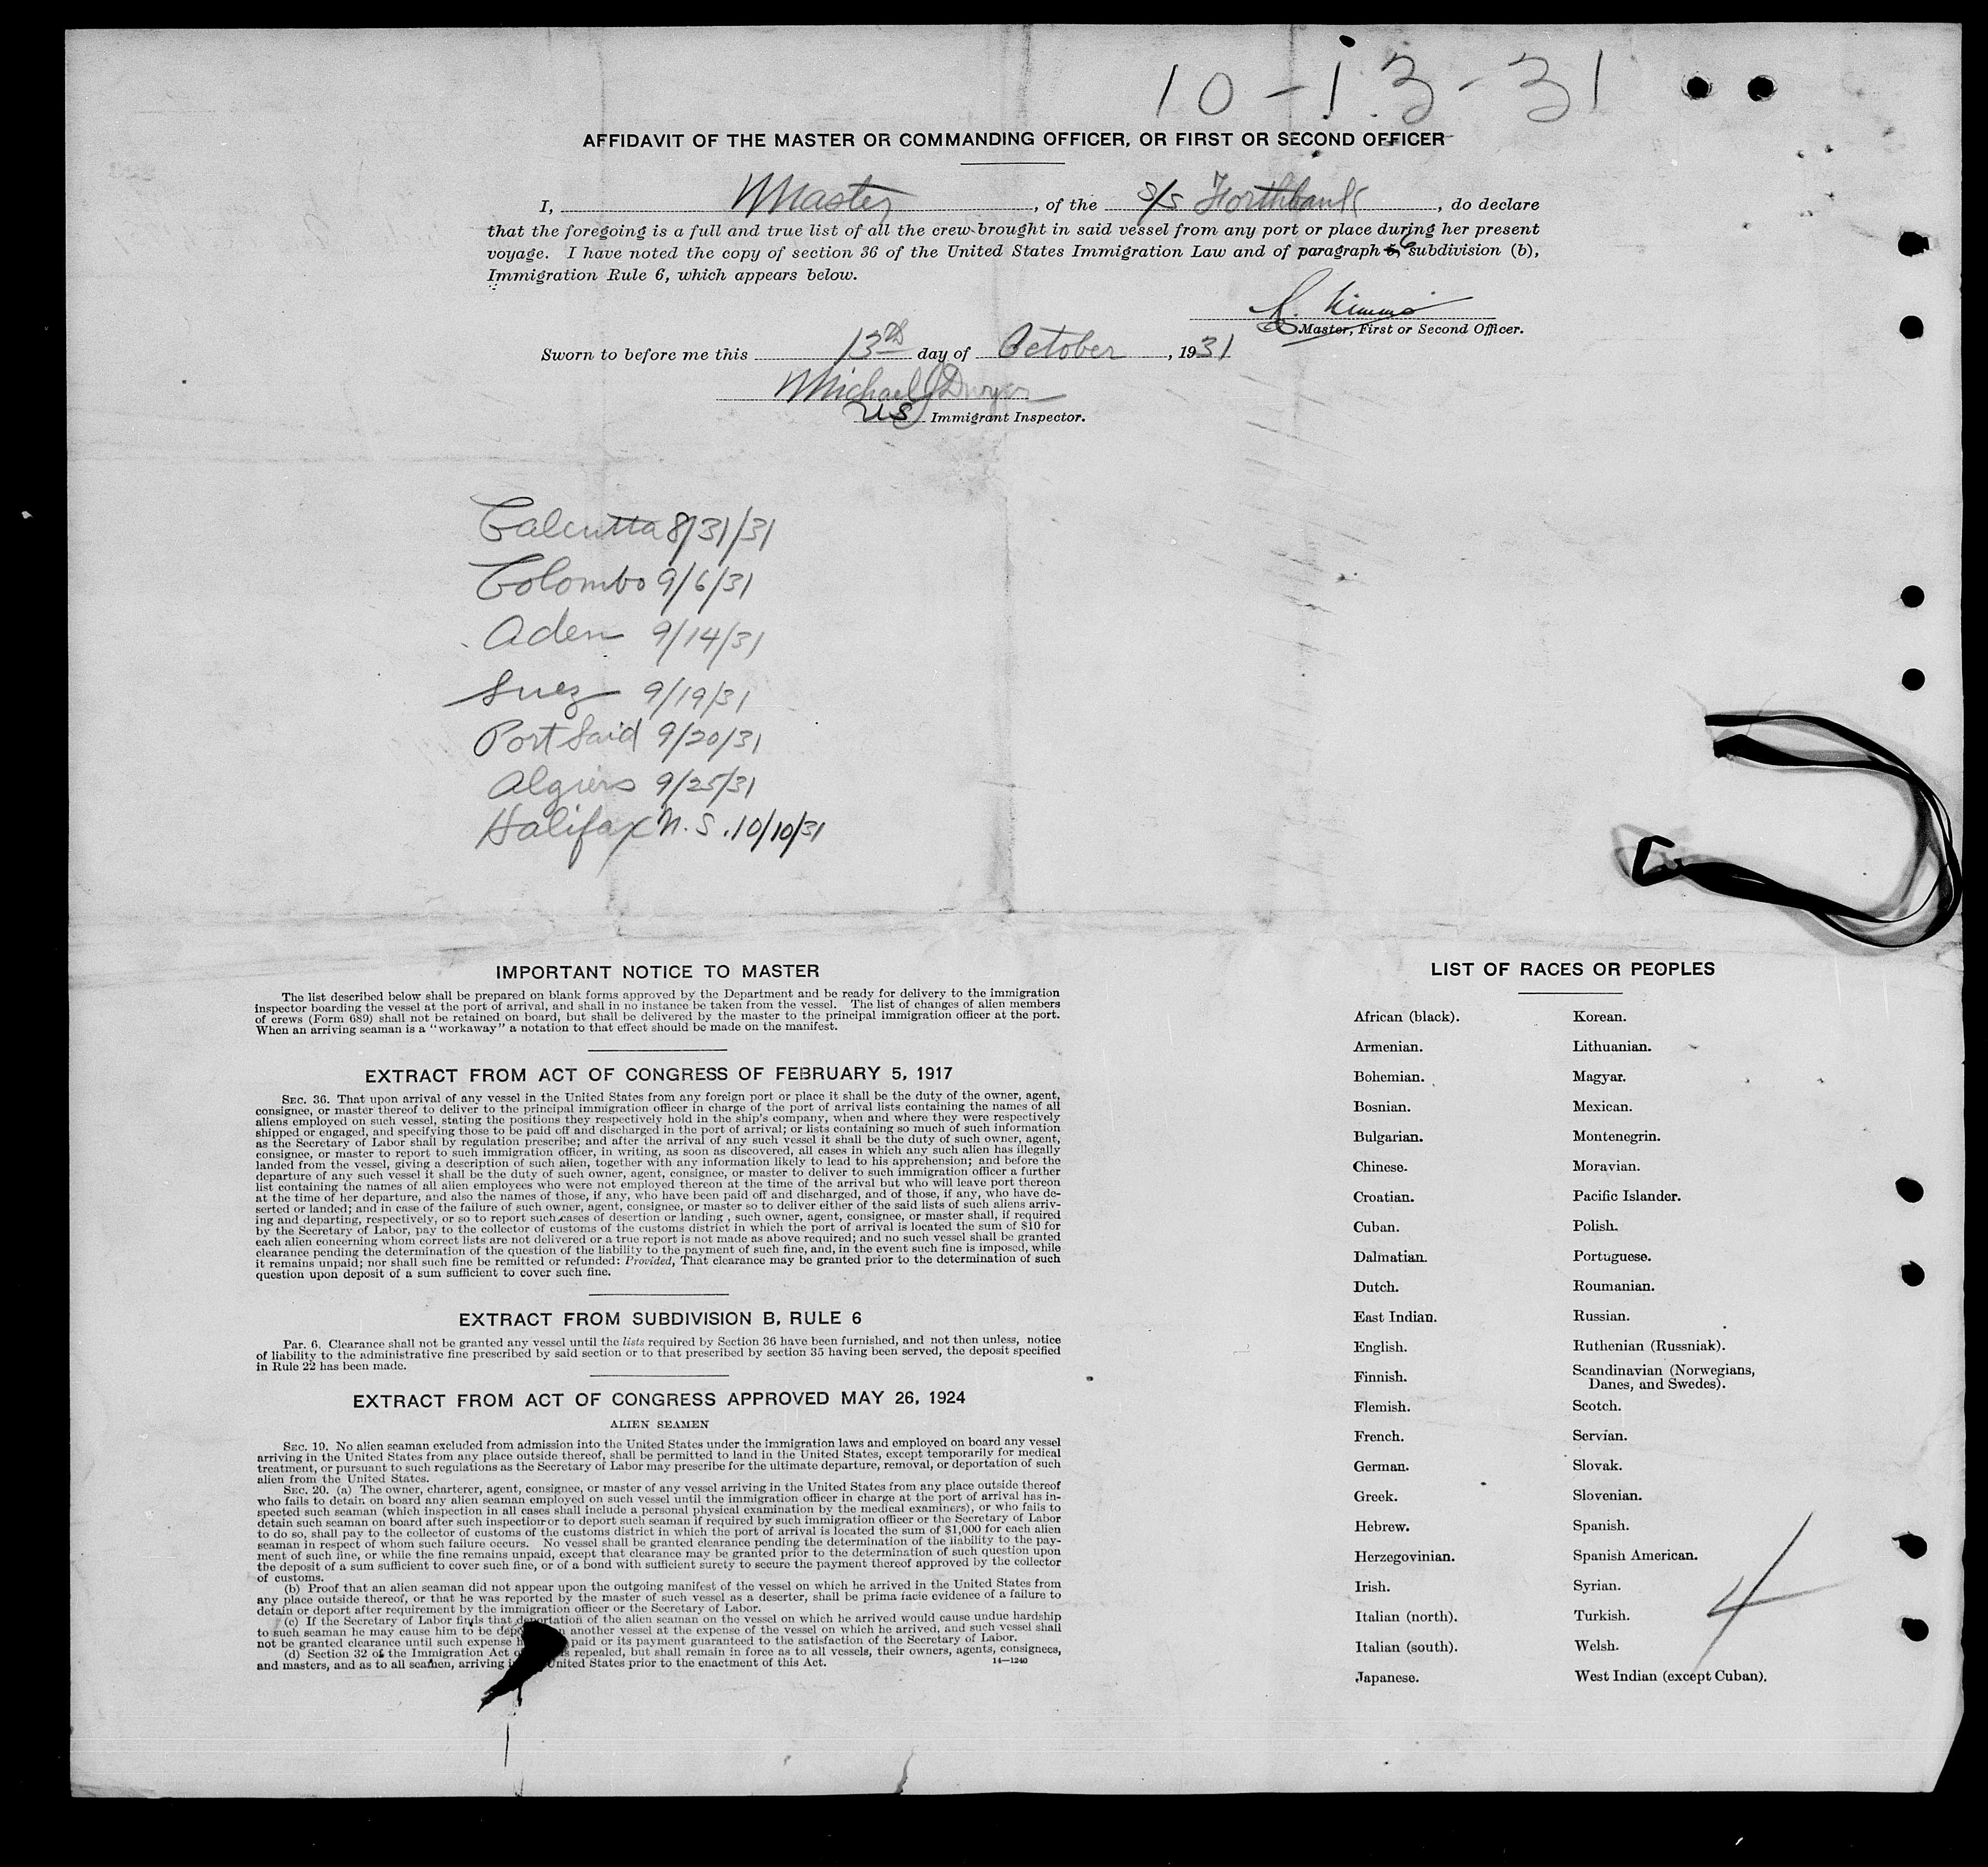 10-13-31
AFFIDAVIT OF THE MASTER OR COMMANDING OFFICER, OR FIRST OR SECOND OFFICER
I, Master, of the s/s Forthbank, do declare
that the foregoing is a full and true list of all the crew brought in said vessel from any port or place during her present
voyage. I have noted the copy of section 36 of the United States Immigration Law and of paragraph 6 subdivision (b),
Immigration Rule 6, which appears below.
Master, First or Second Officer.
Sworn to before me this 13th day of October, 1931
Michael J Dwyer
US Immigrant Inspector.
Calcutta 8/31/31
Colombo 9/6/31
Aden 9/14/31
Suez 9/19/31
Port Said 9/20/31
Algiers 9/25/31
Halifax N.S. 10/10/31
IMPORTANT NOTICE TO MASTER
The list described below shall be prepared on blank forms approved by the Department and be ready for delivery to the immigration
inspector boarding the vessel at the port of arrival, and shall in no instance be taken from the vessel. The list of changes of alien members
of crews (Form 689) shall not be retained on board, but shall be delivered by the master to the principal immigration officer at the port.
When an arriving seaman is a "workaway" a notation to that effect should be made on the manifest.
EXTRACT FROM ACT OF CONGRESS OF FEBRUARY 5, 1917
SEC. 36. That upon arrival of any vessel in the United States from any foreign port or place it shall be the duty of the owner, agent,
consignee, or master thereof to deliver to the principal immigration officer in charge of the port of arrival lists containing the names of all
aliens employed on such vessel, stating the positions they respectively hold in the ship's company, when and where they were respectively
shipped or engaged, and specifying those to be paid off and discharged in the port of arrival; or lists containing so much of such information
as the Secretary of Labor shall by regulation prescribe; and after the arrival of any such vessel it shall be the duty of such owner, agent,
consignee, or master to report to such immigration officer, in writing, as soon as discovered, all cases in which any such alien has illegally
landed from the vessel, giving a description of such alien, together with any information likely to lead to his apprehension; and before the
departure of any such vessel it shall be the duty of such owner, agent, consignee, or master to deliver to such immigration officer a further
list containing the names of all alien employees who were not employed thereon at the time of the arrival but who will leave port thereon
at the time of her departure, and also the names of those, if any, who have been paid off and discharged, and of those, if any, who have de-
serted or landed; and in case of the failure of such owner, agent, consignee, or master so to deliver either of the said lists of such aliens arriv-
ing and departing, respectively, or so to report such cases of desertion or landing, such owner, agent, consignee, or master shall, if required
by the Secretary of Labor, pay to the collector of customs of the customs district in which the port of arrival is located the sum of $10 for
each alien concerning whom correct lists are not delivered or a true report is not made as above required; and no such vessel shall be granted
clearance pending the determination of the question of the liability to the payment of such fine, and, in the event such fine is imposed, while
it remains unpaid; nor shall such fine be remitted or refunded: Provided, That clearance may be granted prior to the determination of such
question upon deposit of a sum sufficient to cover such fine.
EXTRACT FROM SUBDIVISION B, RULE 6
Par. 6. Clearance shall not be granted any vessel until the lists required by Section 36 have been furnished, and not then unless, notice
of liability to the administrative fine prescribed by said section or to that prescribed by section 35 having been served, the deposit specified
in Rule 22 has been made.
EXTRACT FROM ACT OF CONGRESS APPROVED MAY 26, 1924
ALIEN SEAMEN
SEC. 19. No alien seaman excluded from admission into the United States under the immigration laws and employed on board any vessel
arriving in the United States from any place outside thereof, shall be permitted to land in the United States, except temporarily for medical
treatment, or pursuant to such regulations as the Secretary of Labor may prescribe for the ultimate departure, removal, or deportation of such
alien from the United States.
SEC. 20. (a) The owner, charterer, agent, consignee, or master of any vessel arriving in the United States from any place outside thereof
who fails to detain on board any alien seaman employed on such vessel until the immigration officer in charge at the port of arrival has in-
spected such seaman (which inspection in all cases shall include a personal physical examination by the medical examiners), or who fails to
detain such seaman on board after such inspection or to deport such seaman if required by such immigration officer or the Secretary of Labor
to do so, shall pay to the collector of customs of the customs district in which the port of arrival is located the sum of $1,000 for each alien
seaman in respect of whom such failure occurs. No vessel shall be granted clearance pending the determination of the liability to the pay-
ment of such fine, or while the fine remains unpaid, except that clearance may be granted prior to the determination of such question upon
the deposit of a sum sufficient to cover such fine, or of a bond with sufficient surety to secure the payment thereof approved by the collector
of customs.
(b) Proof that an alien seaman did not appear upon the outgoing manifest of the vessel on which he arrived in the United States from
any place outside thereof, or that he was reported by the master of such vessel as a deserter, shall be prima facie evidence of a failure to
detain or deport after requirement by the immigration officer or the Secretary of Labor.
(c) If the Secretary of Labor finds that deportation of the alien seaman on the vessel on which he arrived would cause undue hardship
to such seaman he may cause him to be another vessel at the expense of the vessel on which he arrived, and such vessel shall
not be granted clearance until such expense paid or its payment guaranteed to the satisfaction of the Secretary of Labor.
(d) Section 32 of the Immigration Act repealed, but shall remain in force as to all vessels, their owners, agents, consignees,
and masters, and as to all seamen, arriving United States prior to the enactment of this Act.
14—1240
LIST OF RACES OR PEOPLES
African (black). Korean.
Armenian. Lithuanian.
Bohemian. Magyar.
Bosnian. Mexican.
Bulgarian. Montenegrin.
Chinese. Moravian.
Croatian. Pacific Islander.
Cuban. Polish.
Dalmatian. Portuguese.
Dutch. Roumanian.
East Indian. Russian.
English. Ruthenian (Russniak).
Finnish. Scandinavian (Norwegians,
Danes, and Swedes).
Flemish. Scotch.
French. Servian.
German. Slovak.
Greek. Slovenian.
Hebrew. Spanish.
Herzegovinian. Spanish American.
Irish. Syrian.
Italian (north). Turkish.
Italian (south). Welsh.
Japanese. West Indian (except Cuban).
4